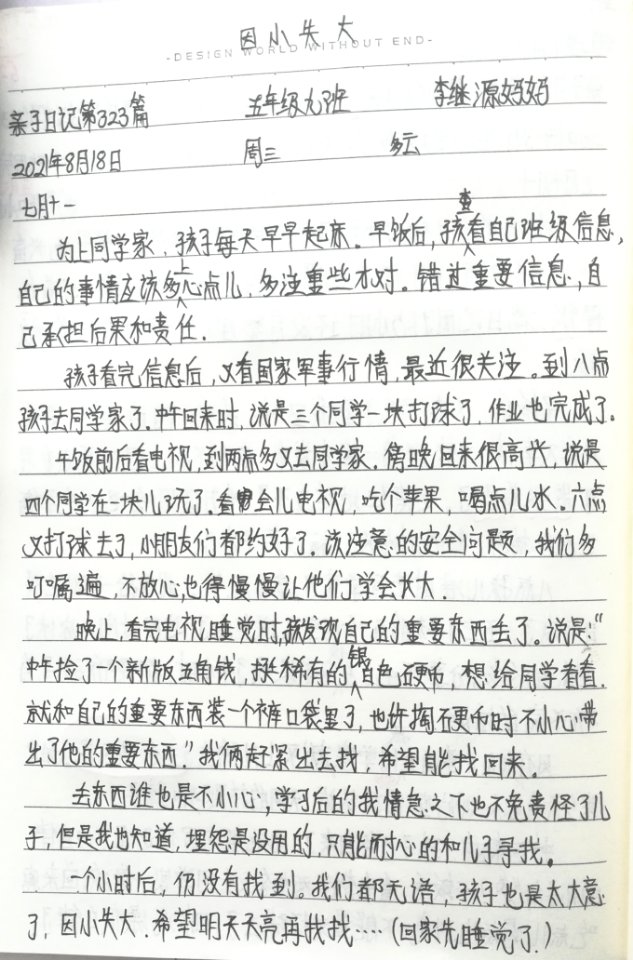 因小失大
-DESIGN WORLD WITHOUT END-
亲子日记第323篇 五年级九班 李继源妈妈
2021年8月18日 周三 多云
七月十一
为上同学家,孩子每天早早起床。早饭后,孩查看自己班级信息,
自己的事情应该多上心点儿,多注重些才对。错过重要信息,自
己承担后果和责任.
孩子看完信息后,又看国家军事行情,最近很关注。到八点
孩子去同学家了.中午回来时,说是三个同学一块打球了,作业也完成了.
午饭前后看电视,到两点多又去同学家.傍晚回来很高兴,说是
四个同学在一块儿玩了.看会儿电视,吃个苹果,喝点儿水.六点
又打球去了,小朋友们都约好了.该注意的安全问题,我们多
叮嘱遍,不放心也得慢慢让他们学会长大.
晚上,看完电视睡觉时,孩发现自己的重要东西丢了。说是:"
中午捡了一个新版五角钱,挺稀有的银白色硬币,想给同学看看.
就和自己的重要东西装一个裤口袋里了,也许掏硬币时不小心带
出了他的重要东西"我俩赶紧出去找,希望能找回来。
丢东西谁也是不小心,学习后的我情急之下也不免责怪了儿
子,但是我也知道,埋怨是没用的,只能耐心的和儿子寻找。
一个小时后,仍没有找到。我们都无语,孩子也是太大意
了,因小失大.希望明天天亮再找找····(回家先睡觉了.)